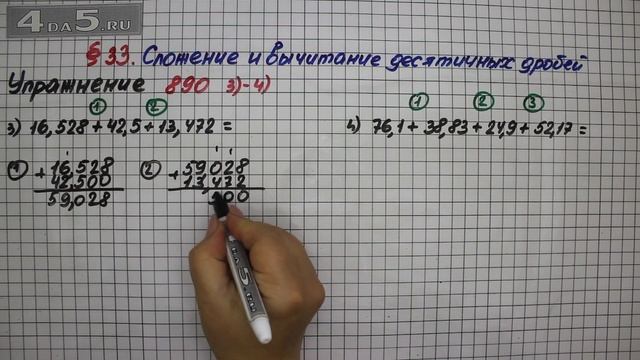 4DA5.RU
§ 33. Сложение и вычитание десятичных дробей
Упражнение 890 3)-4)
① ②
3) 16,528 + 42,5 + 13,472 =
① ② ③
4) 76,1 + 38,83 + 24,9 + 52,17 =
① + 16,528
42,500
59,028
② + 59,028
13,472
,500
4DA5.RU